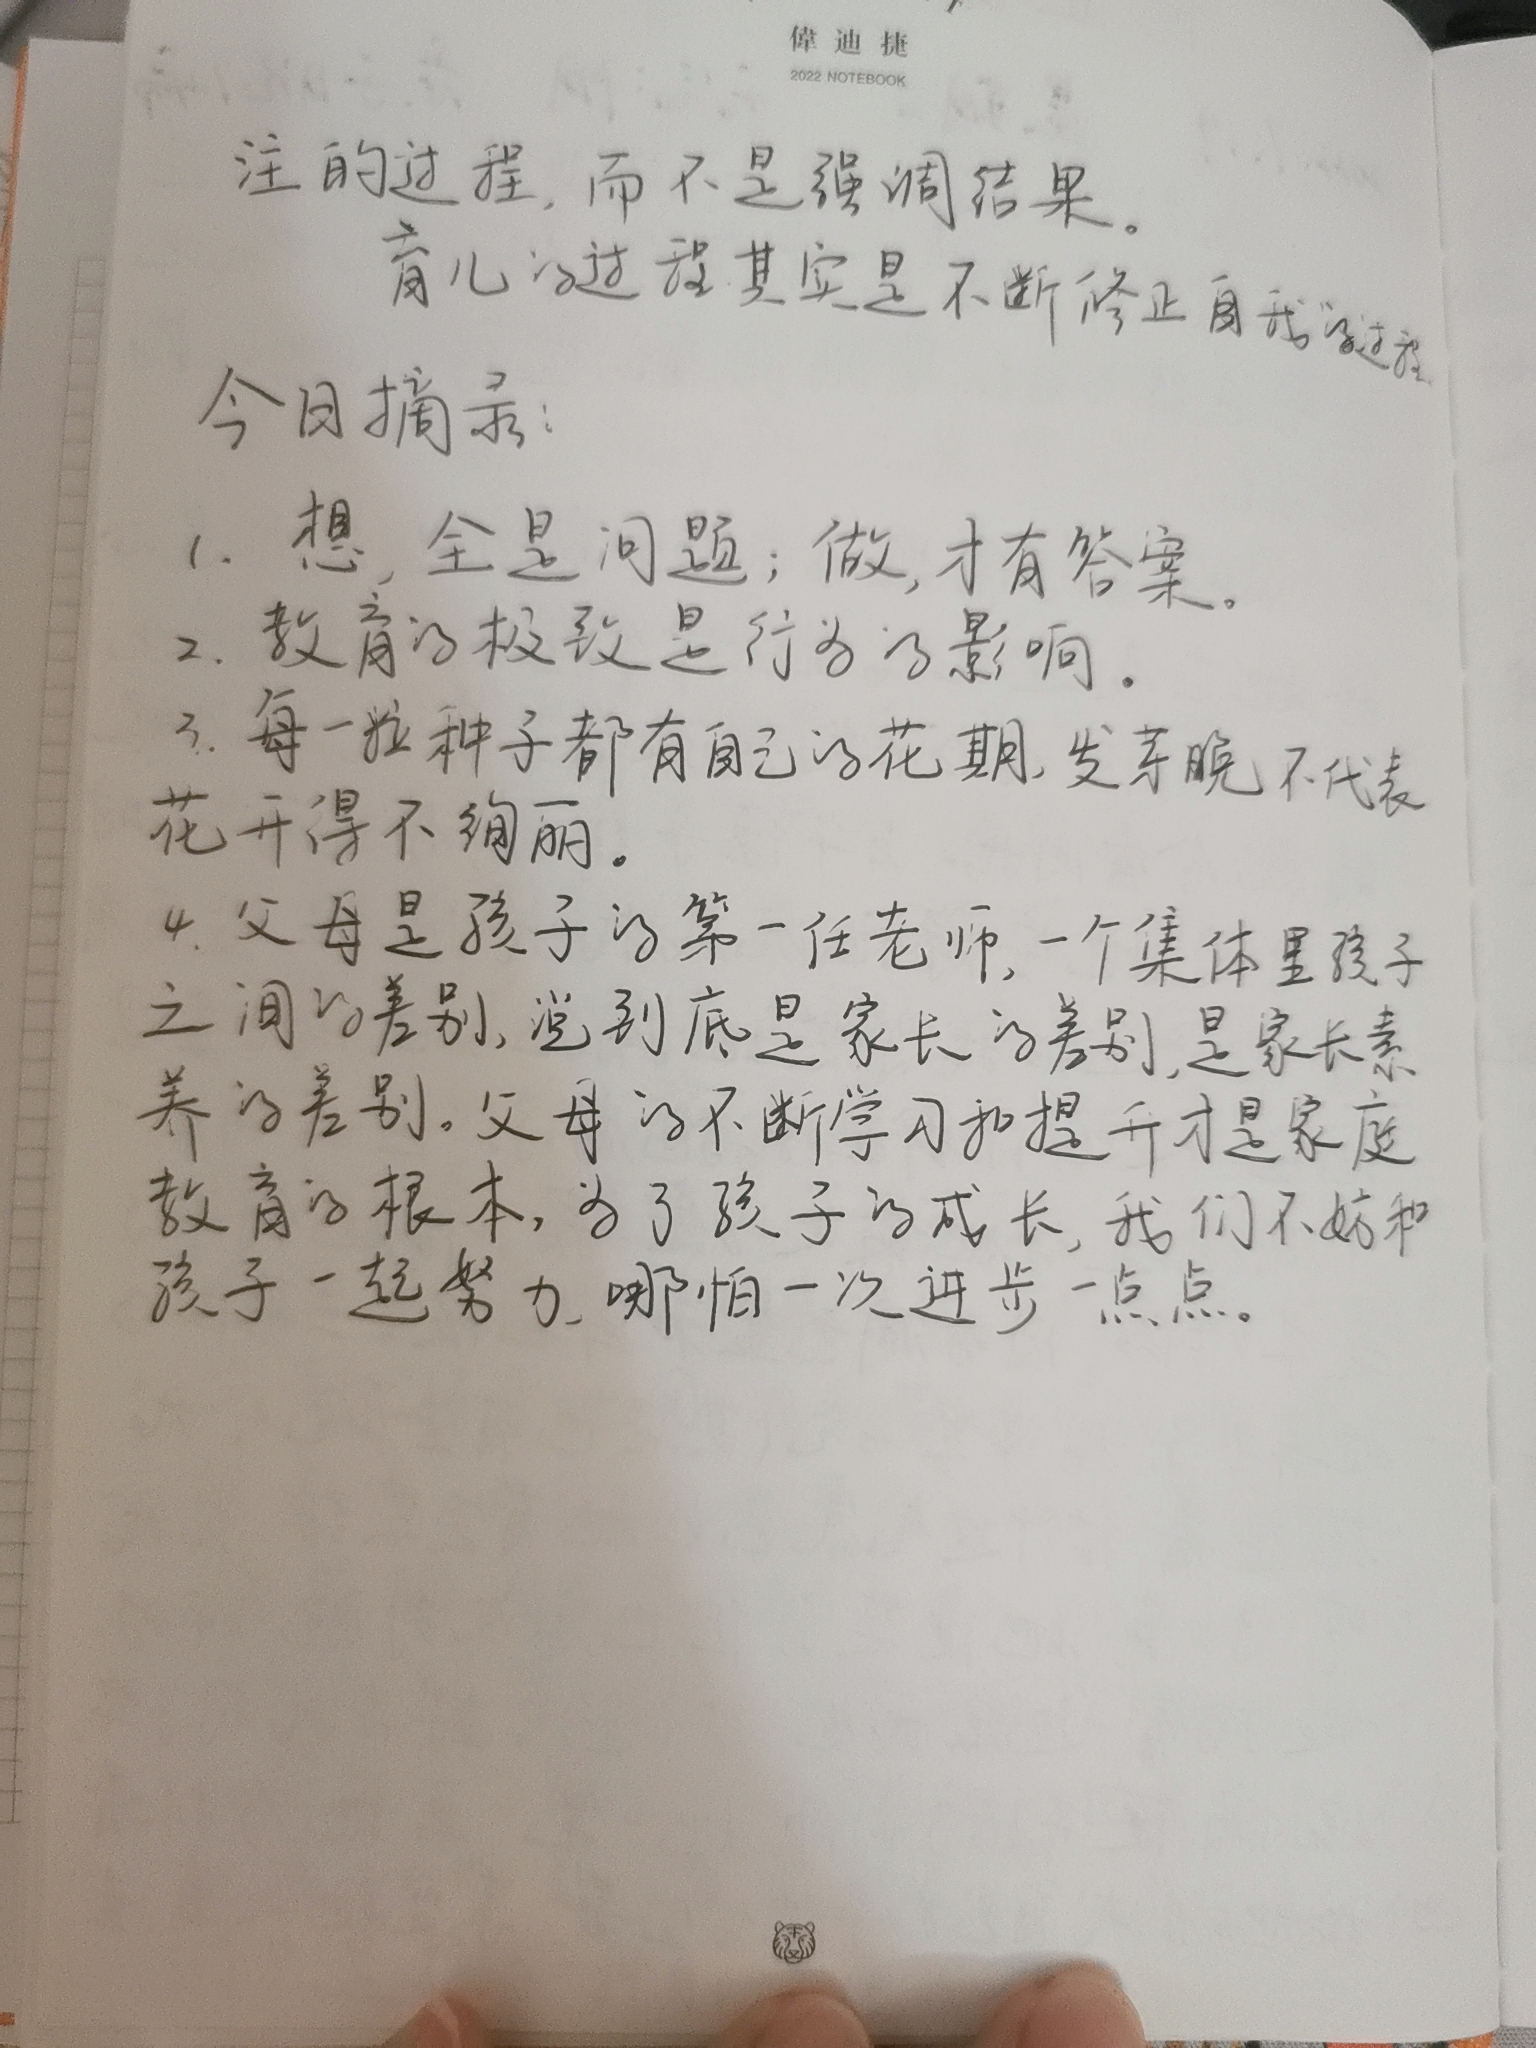 偉迪捷
2022 NOTEBOOK
注的过程,而不是强调结果。
育儿的过程其实是不断修正自我的过程
今日摘录:
1. 想,全是问题;做,才有答案。
2. 教育的极致是行为的影响.
3. 每一粒种子都有自己的花期,发芽晚不代表
花开得不绚丽.
4. 父母是孩子的第一任老师,一个集体里孩子
之间的差别,说到底是家长的差别,是家长素
养的差别。父母的不断学习和提升才是家庭
教育的根本,为了孩子的成长,我们不妨和
孩子一起努力,哪怕一次进步一点点。